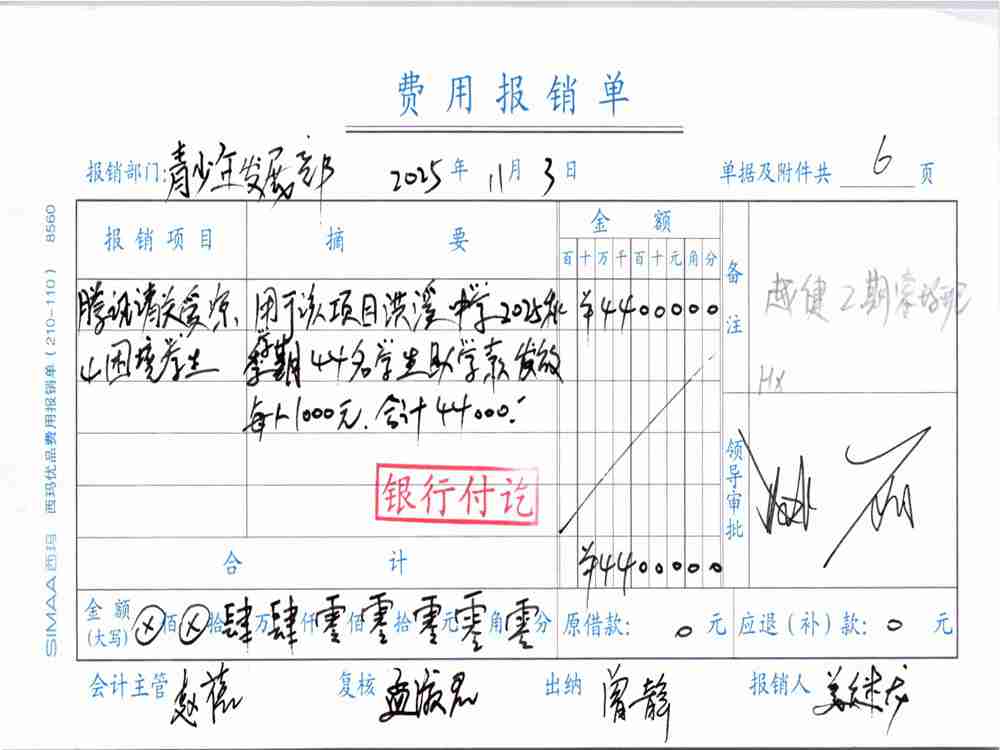 费用报销单
报销部门:青少年发展部 2025年11月3日 单据及附件共 6 页
报销项目 摘要 金额 备注
百十万千百十元角分
用于该项目洪溪中学2025秋 ¥4400000
困境学生 季学期44名学生助学款发放
每人1000元.合计44000.-
银行付讫
领导审批
合计 ¥4400000
金额(大写) ⊗佰⊗拾肆万肆仟零佰零拾零元零角零分 原借款: 0 元 应退(补)款: 0 元
会计主管 复核 出纳 曾静 报销人
SIMAA西玛 西玛优品费用报销单(210-110) 8560